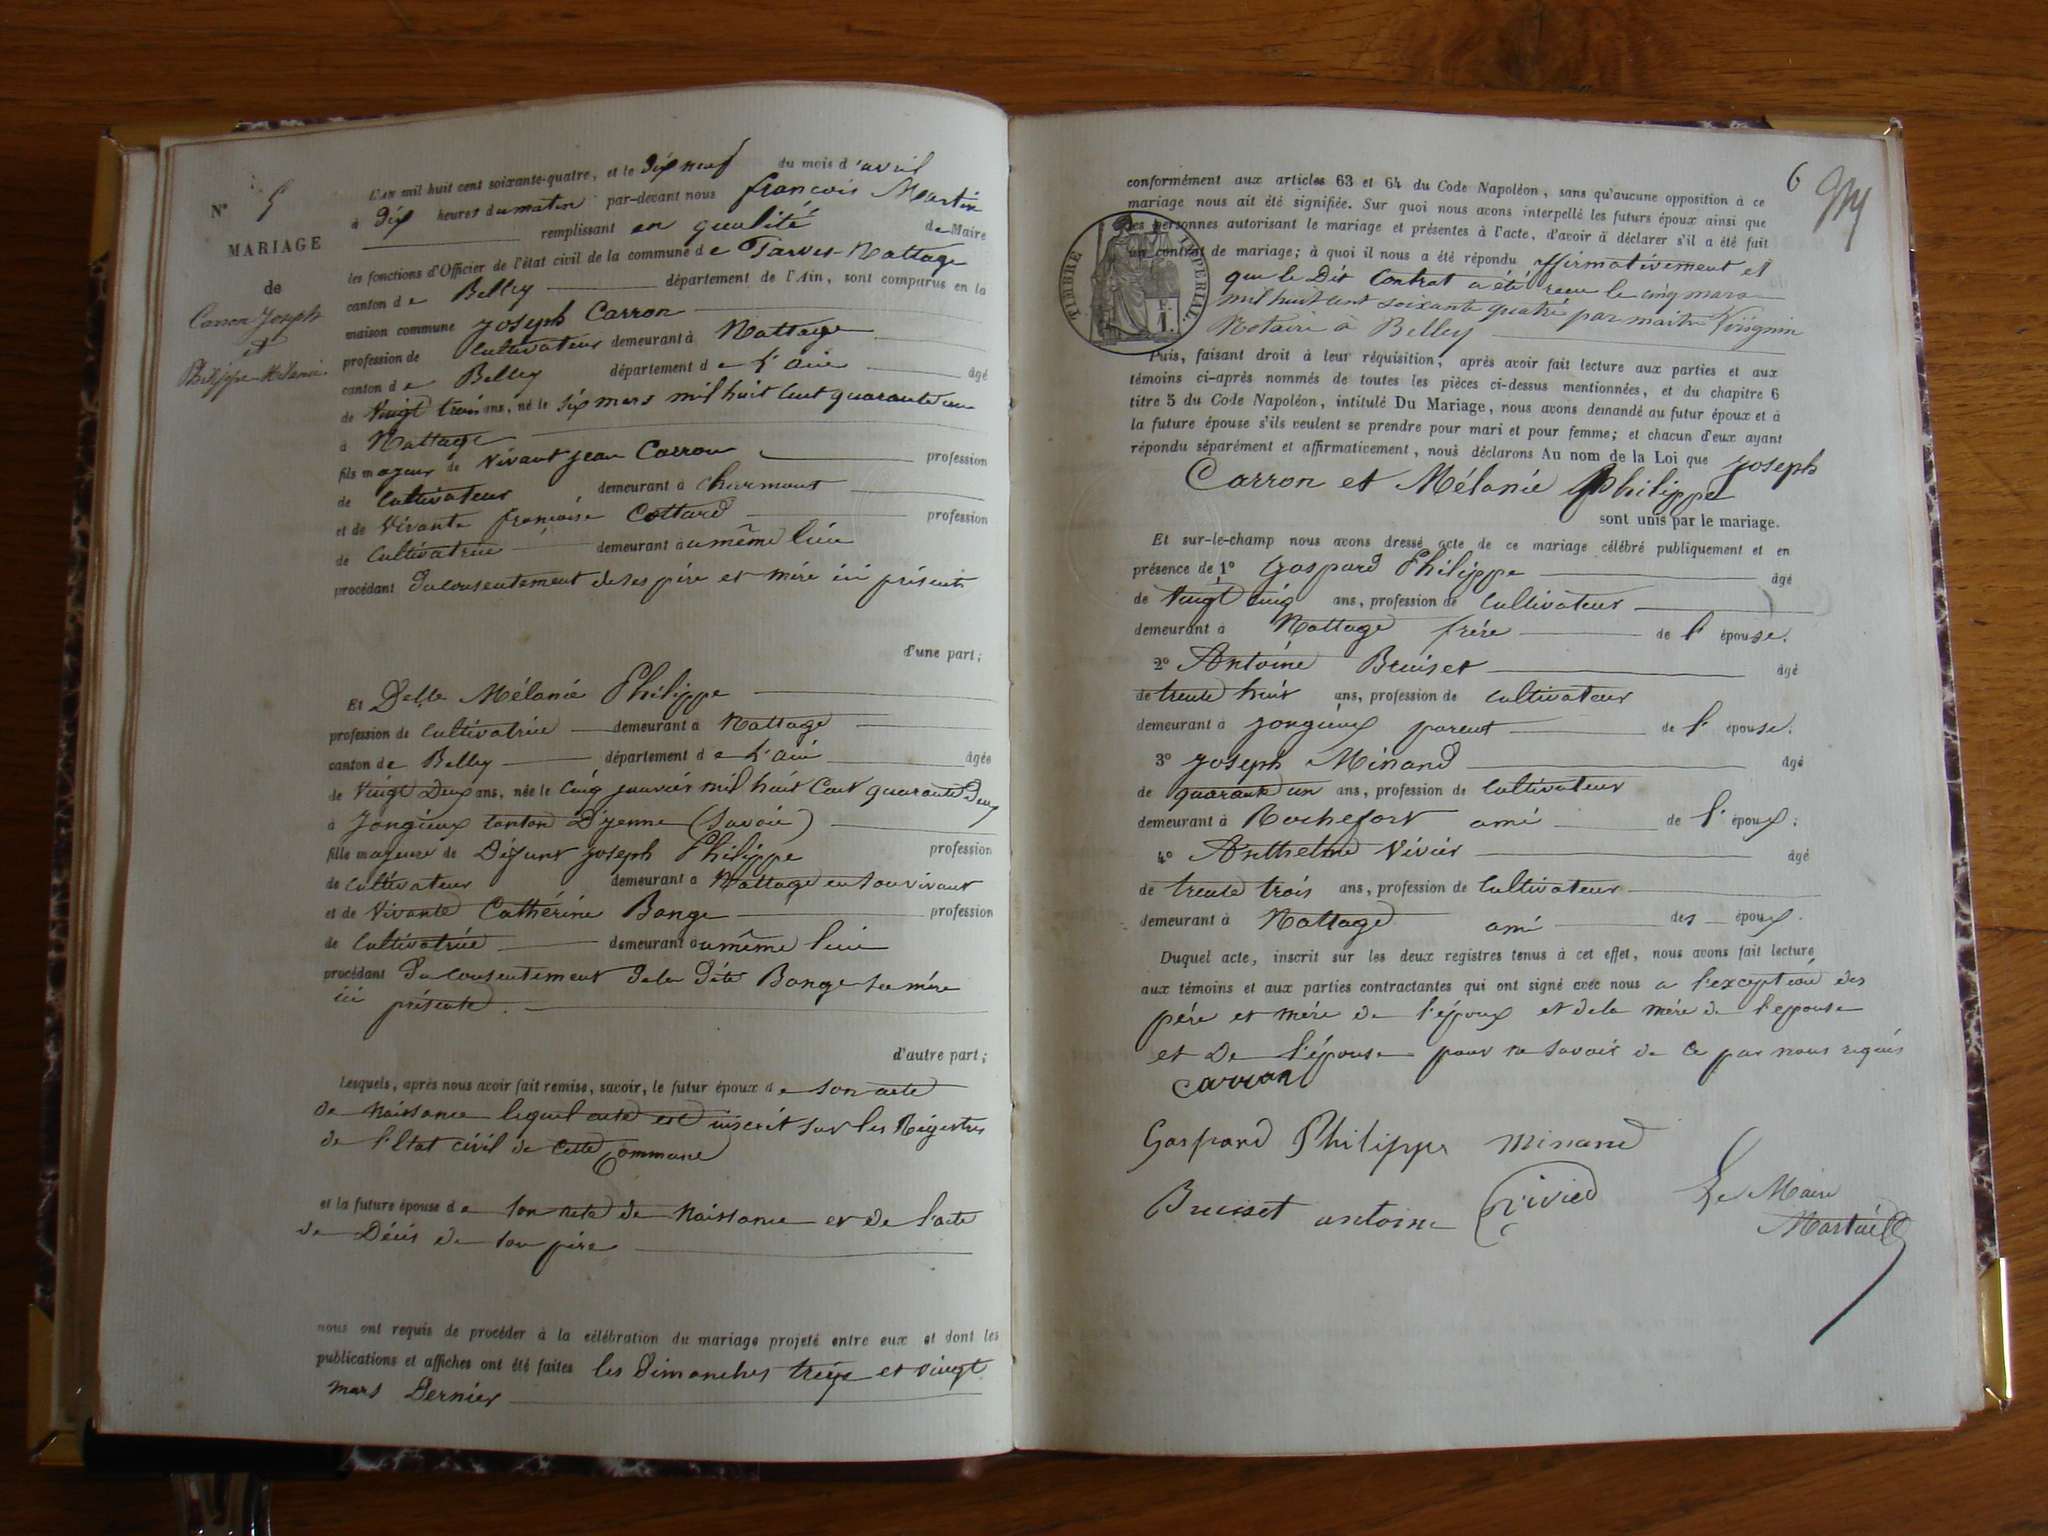 N° 5
MARIAGE
de
Carron Joseph
et
Philippe Mélanie
L'AN mil huit cent soixante-quatre, et le dix neuf du mois d'avril
à dix heures du matin par-devant nous francois Martin
remplissant en qualité de Maire
les fonctions d'Officier de l'état civil de la commune de Parves-Nattage
canton de Belley département de l'Ain, sont comparus en la
maison commune Joseph Carron
profession de Cultivateur demeurant à Nattage
canton de Belley département de L'ain âgé
de Vingt trois ans, né le six mars mil huit cent quarante un
à Nattage
fils majeur de Vivant Jean Carron profession
de Cultivateur demeurant à
et de Vivante françoise Cottard profession
de Cultivatrice demeurant au même lieu
procédant du consentement de ses père et mère ici présents
d'une part;
Et Delle Mélanie Philippe
profession de Cultivatrice demeurant à Nattage
canton de Belley département de L'ain âgée
de Vingt Deux ans, née le Cinq janvier mil huit Cent quarante Deux
à Jongieux Canton D'yenne (Savoie)
fille majeure de Défunt Joseph Philippe profession
de Cultivateur demeurant à Nattage en son vivant
et de Vivante Cathérine Bange profession
de Cultivatrice demeurant au même lieu
procédant Du consentement de la dite Bange sa mère
ici présente.
d'autre part;
Lesquels, après nous avoir fait remise, savoir, le futur époux de son acte
de Naissance lequel acte est inscrit sur les Régistres
de l'Etat civil de Cette Commune
et la future épouse de son acte de Naissance et de l'acte
de Décès de son père
nous ont requis de procéder à la célébration du mariage projeté entre eux et dont les
publications et affiches ont été faites les Dimanches treize et vingt
mars Dernier
6
conformément aux articles 63 et 64 du Code Napoléon, sans qu'aucune opposition à ce
mariage nous ait été signifiée. Sur quoi nous avons interpellé les futurs époux ainsi que
les personnes autorisant le mariage et présentes à l'acte, d'avoir à déclarer s'il a été fait
un contrat de mariage; à quoi il nous a été répondu affirmativement et
que le Dit Contrat a été reçu le cinq mars
mil huit cent soixante quatre par maître
Notaire à Belley
TIMBRE IMPERIAL
1 F.
Puis, faisant droit à leur réquisition, après avoir fait lecture aux parties et aux
témoins ci-après nommés de toutes les pièces ci-dessus mentionnées, et du chapitre 6
titre 5 du Code Napoléon, intitulé Du Mariage, nous avons demandé au futur époux et à
la future épouse s'ils veulent se prendre pour mari et pour femme; et chacun d'eux ayant
répondu séparément et affirmativement, nous déclarons Au nom de la Loi que Joseph
Carron et Mélanie Philippe
sont unis par le mariage.
Et sur-le-champ nous avons dressé acte de ce mariage célébré publiquement et en
présence de 1° Gaspard Philippe âgé
de Vingt cinq ans, profession de Cultivateur
demeurant à Nattage frère de l'épouse.
2° Antoine Bruiset âgé
de trente huit ans, profession de Cultivateur
demeurant à Jongieux parent de l'épouse.
3° Joseph Minand âgé
de quarante un ans, profession de Cultivateur
demeurant à Rochefort ami de l'époux;
4° Anthelme Vivier âgé
de trente trois ans, profession de Cultivateur
demeurant à Nattage ami des époux.
Duquel acte, inscrit sur les deux registres tenus à cet effet, nous avons fait lecture
aux témoins et aux parties contractantes qui ont signé avec nous a l'exception des
père et mère de l'époux et de la mère de l'epouse
et De l'épouse pour ne savoir de ce par nous requis
carron
Gaspard Philippe minand
Bruiset antoine Vivied Le Maire
Martin